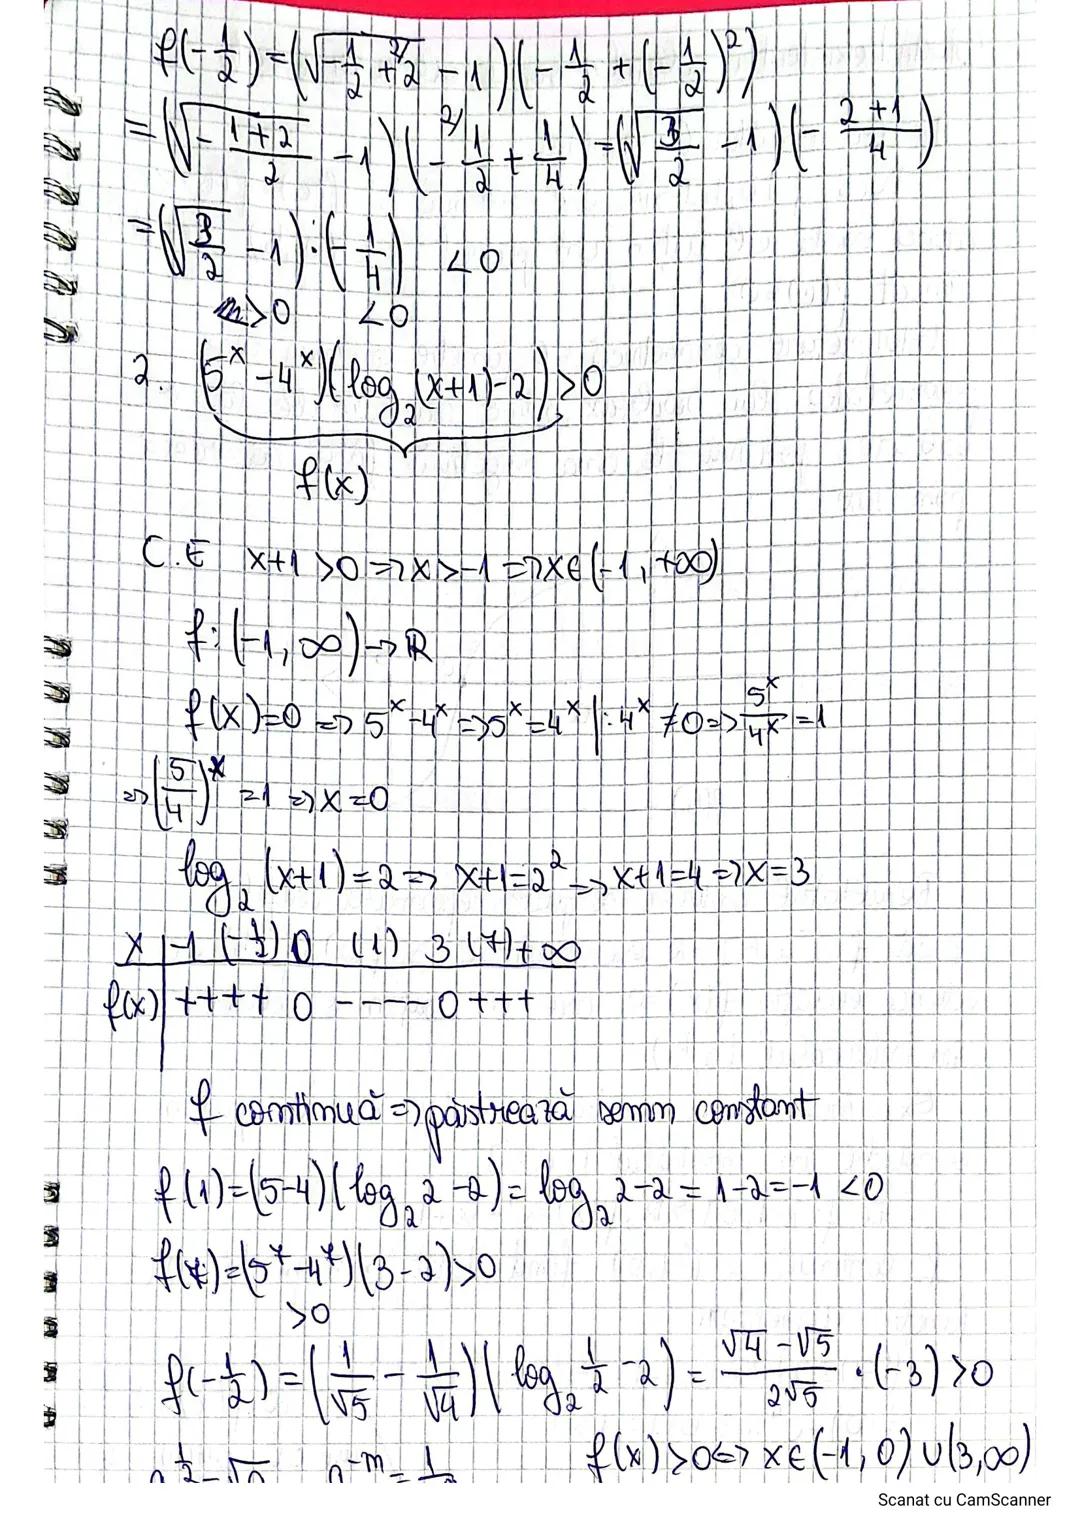 f(-1/2) = (√(-1/2 + ²⁾2) - 1)(-1/2 + (-1/2)²)
= (√(-(1+2)/2) - 1)(- ²⁾1/2 + 1/4) = (√(3/2) - 1)(- (2+1)/4)
= (√(3/2) - 1) : (-1/4) < 0
>0 <0
2. (5^x - 4^x)(log₂(x+1) - 2) > 0
f(x)
C.E x+1 > 0 => x > -1 => x ∈ (-1, +∞)
f: (-1, ∞) -> ℝ
f(x) = 0 => 5^x - 4^x => 5^x = 4^x | : 4^x ≠ 0 => 5^x/4^x = 1
=> (5/4)^x = 1 => x = 0
log₂(x+1) = 2 => x+1 = 2² => x+1 = 4 => x = 3
x | -1 (-1/2) 0 (1) 3 (7) +∞
f(x) | ++++ 0 ---- 0 +++
f continuă => păstrează semn constant
f(1) = (5-4)(log₂ 2 - 2) = log₂ 2 - 2 = 1 - 2 = -1 < 0
f(7) = (5⁷ - 4⁷)(3 - 2) > 0
>0
f(-1/2) = (1/√5 - 1/√4)(log₂ 1/2 - 2) = (√4 - √5)/(2√5) · (-3) > 0
f(x) > 0 <=> x ∈ (-1, 0) ∪ (3, ∞)
Scanat cu CamScanner